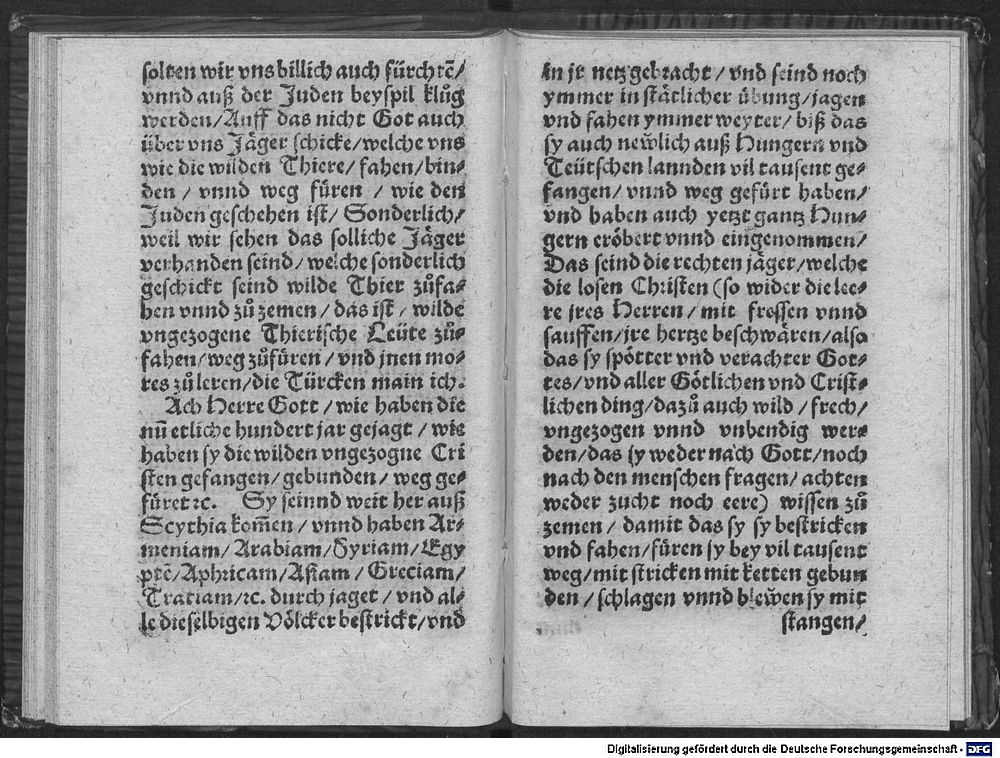 solten wir vns billich auch fürchtē/
vnnd auß der Juden beyspil klůg
werden/Auff das nicht Got auch
über vns Jäger schicke/welche vns
wie die wilden Thiere/fahen/bin⸗
den/vnnd weg füren/wie den
Juden geschehen ist/Sonderlich/
weil wir sehen das solliche Jäger
verhanden seind/welche sonderlich
geschickt seind wilde Thier zůfa⸗
hen vnnd zů zemen/das ist/wilde
vngezogene Thierische Leüte zů⸗
fahen/weg zůfüren/vnd jnen mo⸗
res zů leren/die Türcken main ich.
Ach Herre Gott/wie haben die
nū etliche hundert jar gejagt/wie
haben sy die wilden vngezogne Cri
sten gefangen/gebunden/weg ge⸗
füret ꝛc. Sy seinnd weit her auß
Scythia kom̄en/vnnd haben Ar⸗
meniam/Arabiam/Syriam/Egy
ptē/Aphricam/Asiam/Greciam/
Tratiam/ꝛc. durch jaget/vnd al⸗
le dieselbigen Völcker bestrickt/vnd
in jr netz gebracht/vnd seind noch
ymmer in stätlicher übung/jagen
vnd fahen ymmer weyter/biß das
sy auch newlich auß Hungern vnd
Teütschen lannden vil tausent ge⸗
fangen/vnnd weg gefürt haben/
vnd haben auch yetzt gantz Hun⸗
gern eröbert vnnd eingenommen/
Das seind die rechten jäger/welche
die losen Christen (so wider die lee⸗
re jres Herren/mit fressen vnnd
sauffen/jre hertze beschwären/also
das sy spötter vnd verachter Got⸗
tes/vnd aller Götlichen vnd Crist⸗
lichen ding/dazů auch wild/frech/
vngezogen vnnd vnbendig wer⸗
den/das sy weder nach Gott/noch
nach den menschen fragen/achten
weder zucht noch eere) wissen zů
zemen/damit das sy sy bestricken
vnd fahen/füren sy bey vil tausent
weg/mit stricken mit ketten gebun
den/schlagen vnnd blewen sy mit
stangen/
Digitalisierung gefördert durch die Deutsche Forschungsgemeinschaft - DFG